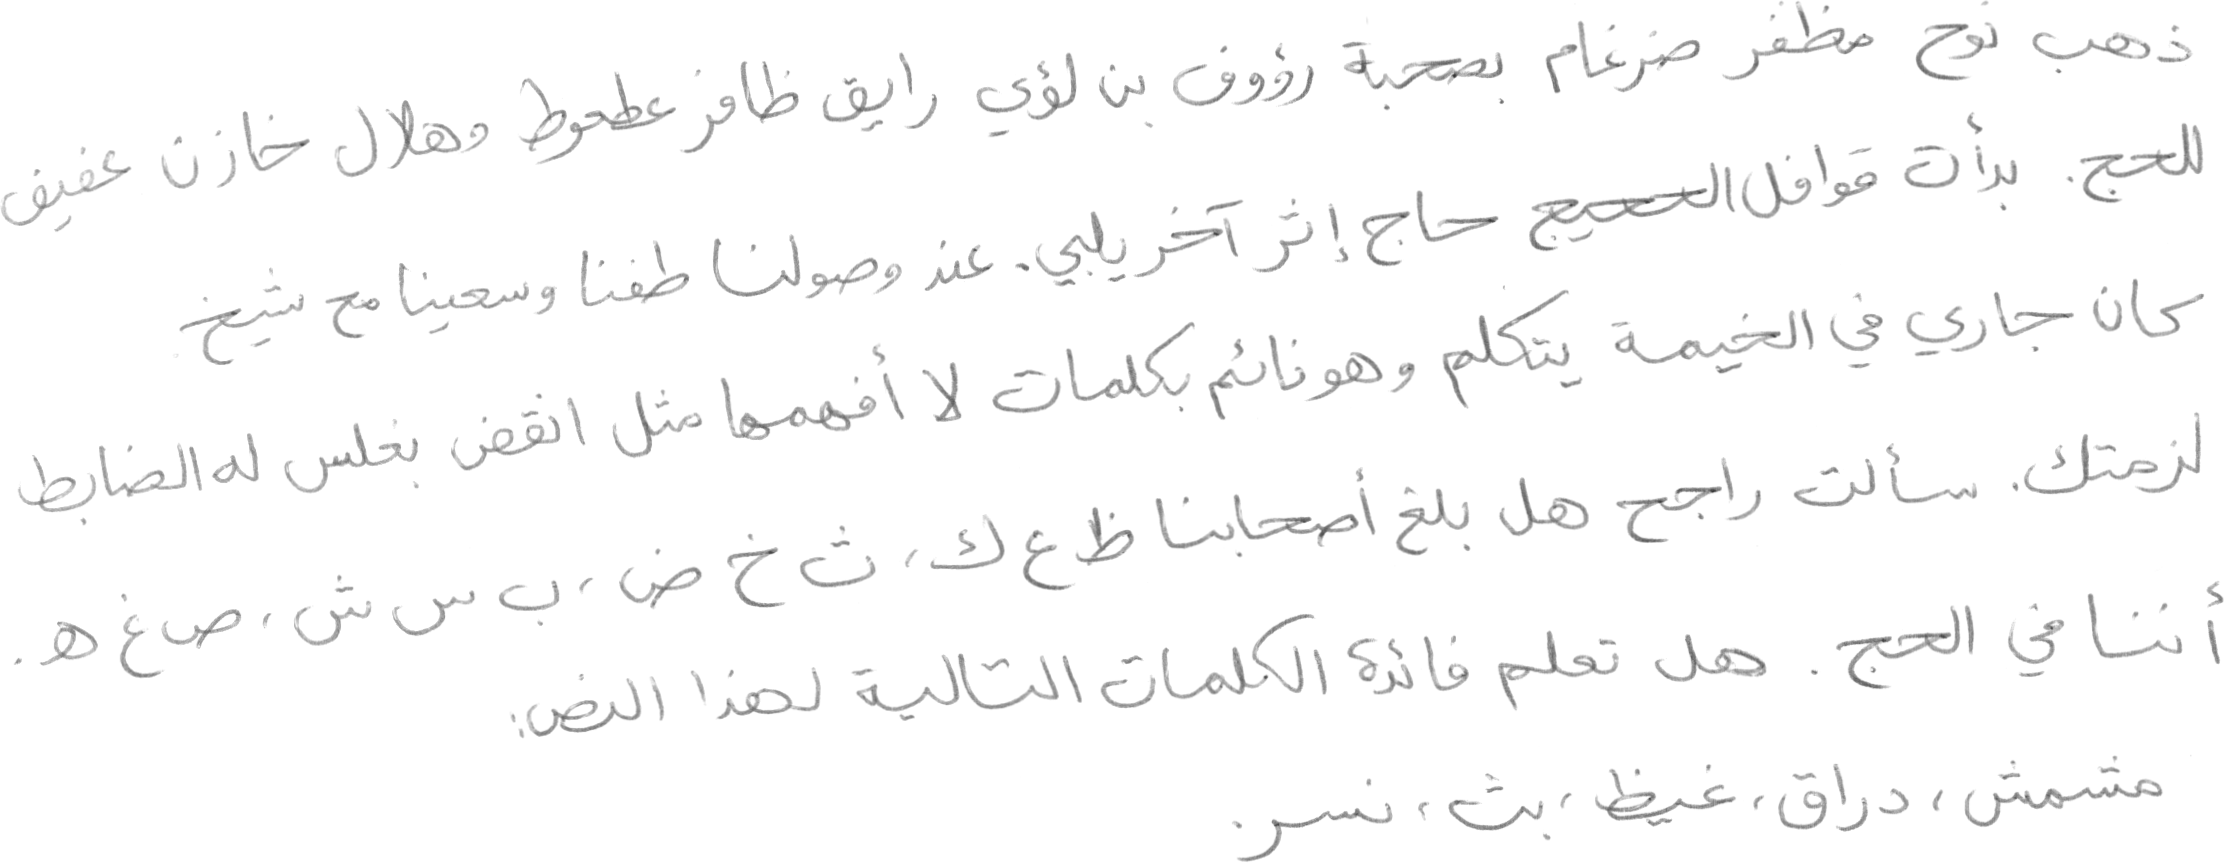 ذهب نوح مظفر ضرغام بصحبة رؤوف بن لؤي رايق ظافر عطعوط وهلال خازن عفيف
للحج. بدأت قوافل الحجيج حاج إثر آخر يلبي. عند وصولنا طفنا وسعينا مع شيخ
كان جاري في الخيمة يتكلم وهو نائم بكلمات لا أفهمها مثل انقض بغلس له الضابط
لزمتك. سألت راجح هل بلغ أصحابنا ظ ع ك، ث خ ض، ب س ش، ص غ ه.
أننا في الحج. هل تعلم فائدة الكلمات التالية لهذا النص:
مشمش، دراق، غيظ، بث، نسر.